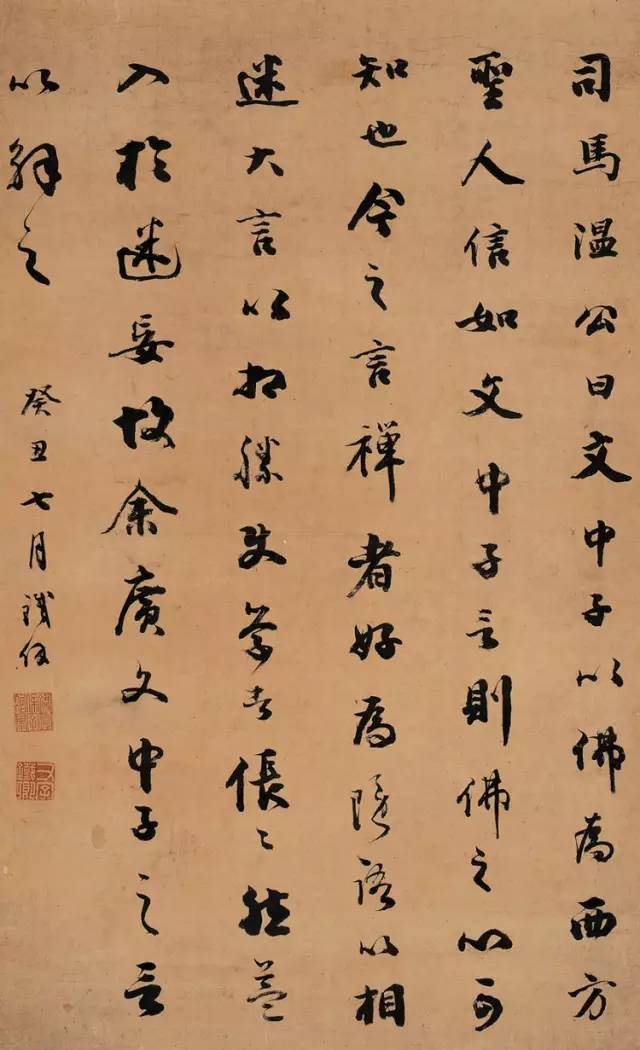 司馬温公曰文中子以佛為西方
聖人信如文中子言則佛之心可
知也今之言禅者好為隠語以相
迷大言以相勝使学者倀〻然益
入於迷妄故余廣文中子之言
以解之
癸丑七月